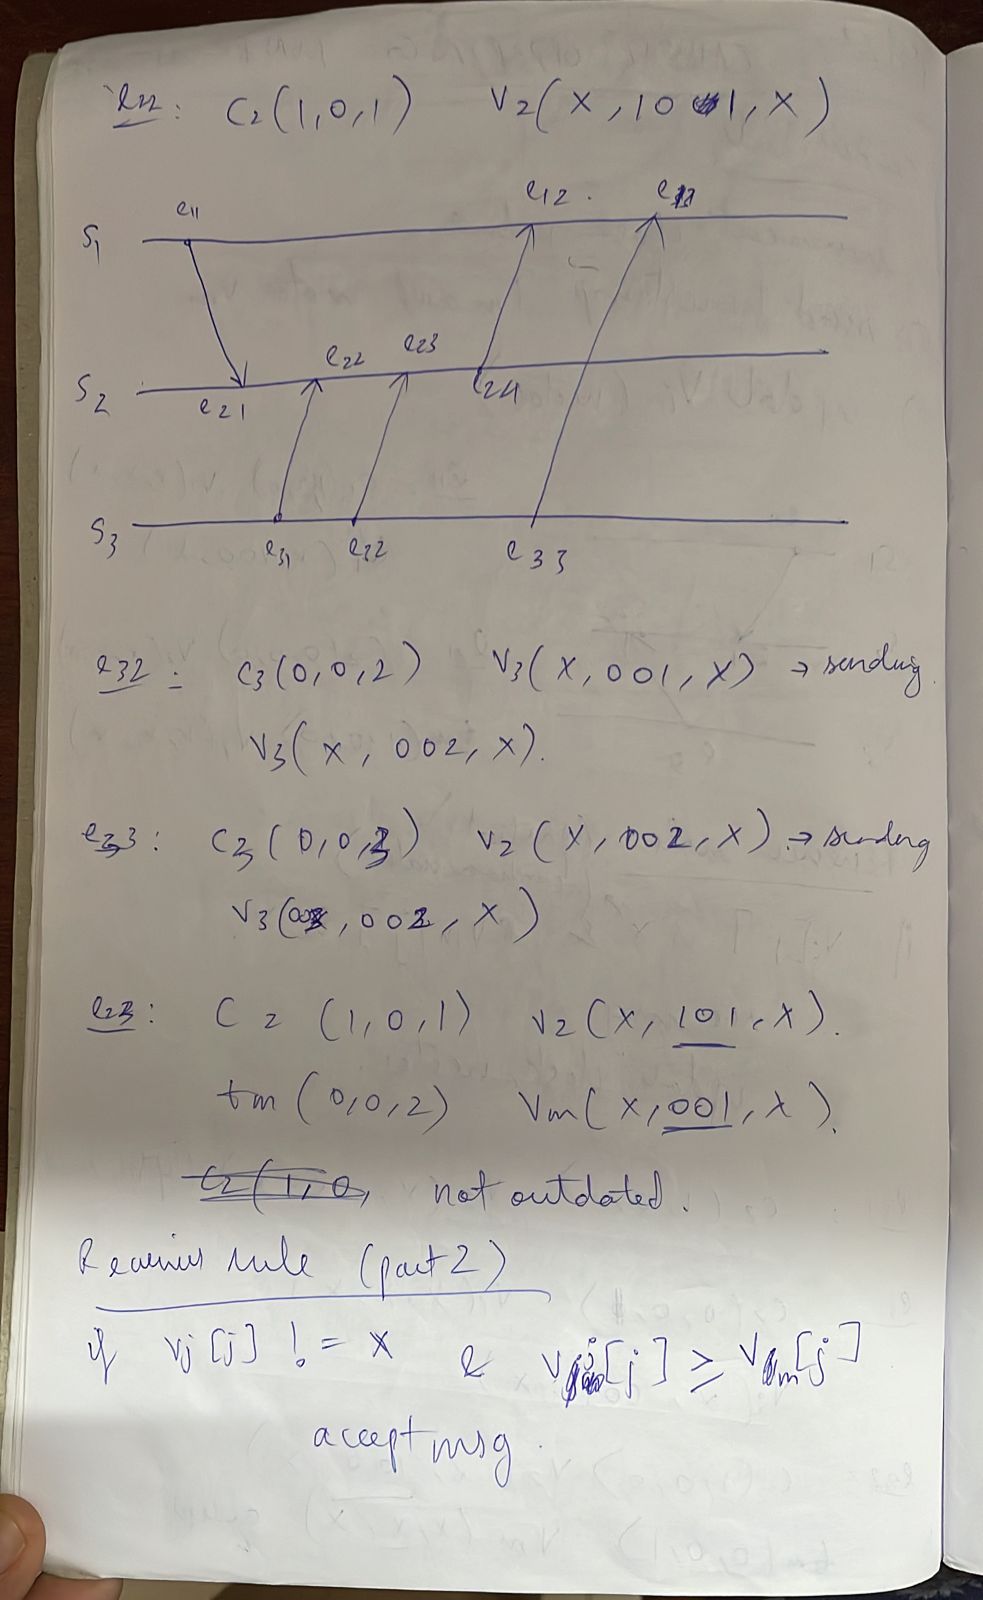 e22: C2(1,0,1) V2(x, 101, x)
e11 e12 .
S1
e22 e23
S2 e21 e24
S3 e31 e32 e33
e32: C3(0,0,2) V3(x, 001, x) → sending
V3(x, 002, x).
e33: C3(0,0,3) V2(x, 002, x) → sending
V3(003, 002, x)
e23: C2 (1,0,1) V2(x, 101, x).
tm (0,0,2) Vm(x, 001, x).
C2(1,0, not outdated.
Receiver rule (part 2)
if Vj[j] != x & Vj[j] ≥ Vm[j]
accept msg.